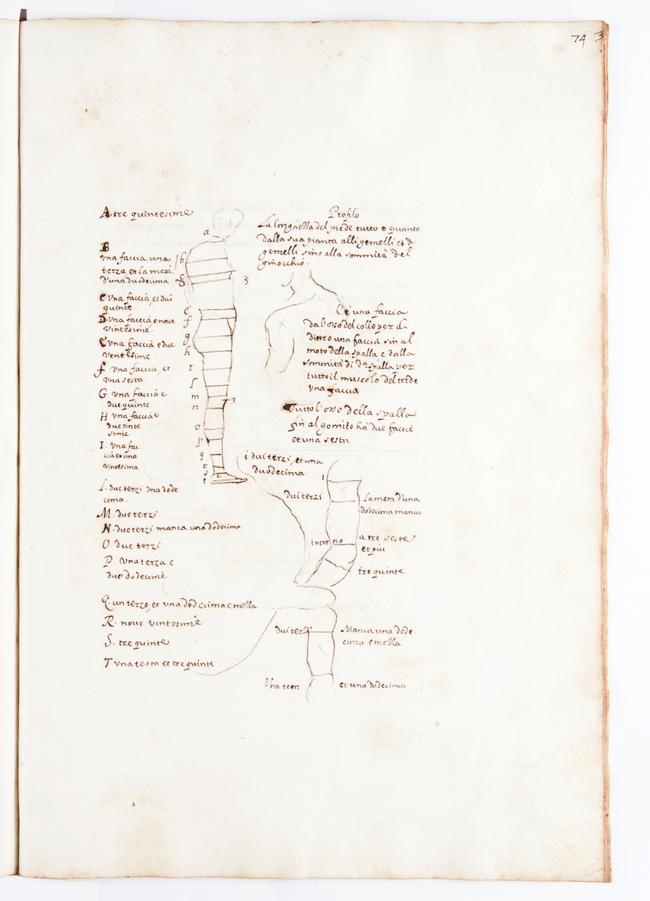 74
A tre quintesime
B
una faccia una
terza et la meta
d'una duodecima
C una faccia, et dui
quinte
D una faccia e nove
vintesime
E una faccia e due
ventesime
F una faccia et
una sesta
G una faccia e
due quinte
H una faccia e
due vinte
sime
I una fac
cia et uno
vintesima
L due terzi una dode
cima
M due terzi
N due terzi manca una dodecima
O due terzi
P una terza e
due dodeume
Q un terzo, et una dodecima e mella
R nove vintesime
S tre quinte
T una testa et tre quinte
a
b
3
e
f
g
h
I
l
m
n
o
p
q
r
s
t
Profilo
La longhella del piede tutto e quanto
dalla sua pianta alli gemelli et d
gemelli sino alla sommità del
ginocchio
C'è una faccia
da l'osso del collo per di
dietro una faccia sin al
moto della spalla e dalla
sommità di da spalla per
tutto il muscolo
una faccia
Tutto l'osso della spalla
fin al gomito ha due faccie
et una sesta
i dui terzi et una
duodecima
dui terzi
La meta d'una
dodecima manca
Inter no
a tre seste
et piu
tre quinte
dui terzi
Manca una dode
cima e mella
Una testa
et una dodecima